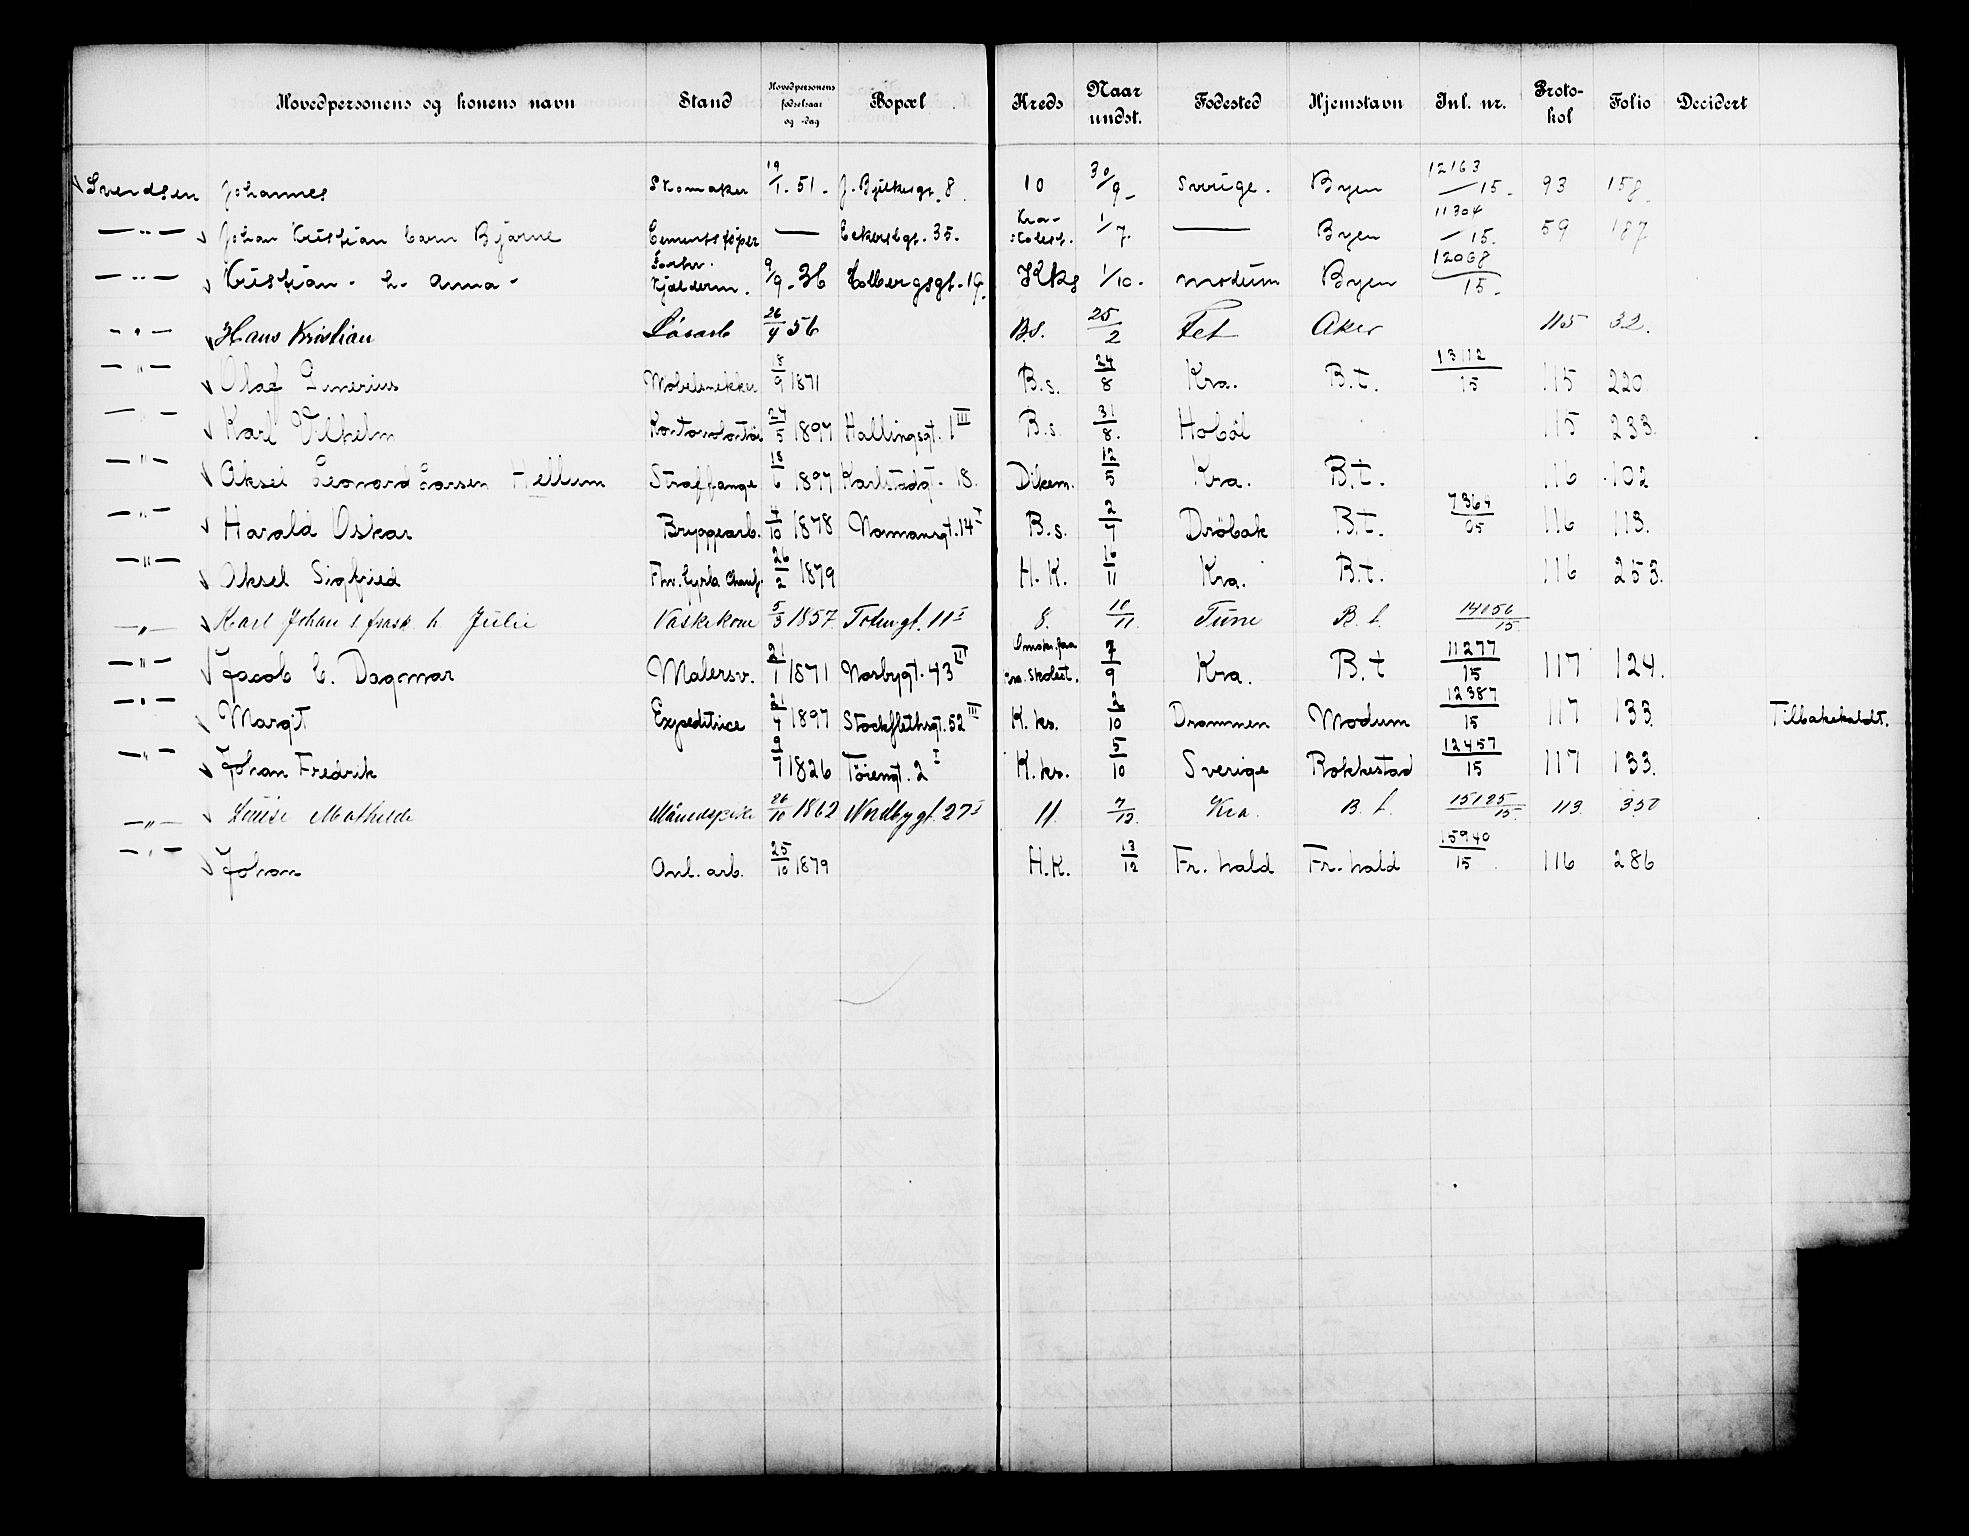 Hovedpersonens og konens navn Stand Hovedpersonens fødselsaar og -dag Bopæl Kreds Naar undst. Fødested Hjemstavn Inl. nr. Protokol Folio Decidert
Svendsen Johannes Skomaker 19/1. 51. J. Bjelkesgt. 8 10 30/9 Sverige. Byen 12163/15. 93 158.
—"— Johan Kristian barn Bjarne Cementstøper — Eckersbgt. 35. Kra. Skolest. 1/7. — Byen 11304/15. 59 187
—"— Kristian. h. Anna Forhv. Kjælderm. 9/9. 36 Holbergsgt. 19. KKs 1/10. Modum Byen 12068/15.
—"— Hans Kristian Løsarb 26/4 56 B.s. 25/2 Fet Aker 115 32.
—"— Olaf Enerius Møbelsnekker 18/9 1871 B.s. 24/8 Kra. B.t. 13112/15 115 220
—"— Karl Vilhelm Kontorvolontør 24/5 1897 Hallingsgt. 1 III B.s. 31/8. Hobøl 115 233.
—"— Aksel Leonard Larsen Hellum Straffange 18/6 1897 Karlstadgt. 18. Dikem. 12/5 Kra. B.t. 116 102
—"— Harald Oskar Bryggearb. 4/10 1878 Normansgt. 14 I B.s. 2/7 Drøbak B.t. 7364/05 116 113.
—"— Aksel Sigfried Fhv. Eyrla Chauf. 26/2 1879 H. K. 16/11 Kra. B.t. 116 253.
—"— Karl Johan s frask. h Julie Vaskekone 5/3 1857. Totengt. 11 I 8. 10/11. Tune B. t. 14056/15.
—"— Jacob E. Dagmar Malersv. 21/1 1871 Norbygt. 43 III Omsk. fra Kra. Skolest. 7/9 Kra. B.t 11277/15 117 124.
—"— Margit Expeditrice 21/4 1897 Stockflethsgt. 52 III K. ks. 2/10 Drammen Modum 12387/15 117 133. Tilbakekaldt.
—"— Johan Fredrik 9/7 1826 Tøiengt. 2 I K. ks. 5/10 Sverige Rokkestad 12457/15 117 133.
—"— Louise Mathilde Månedspike 26/10 1862 Nordbygt. 27 I 11. 7/12. Kra. B. t. 15125/15. 113 350
—"— Johan Anl. arb. 25/10 1879 H.K. 13/12 Fr. hald Fr. hald 15940/15. 116 286